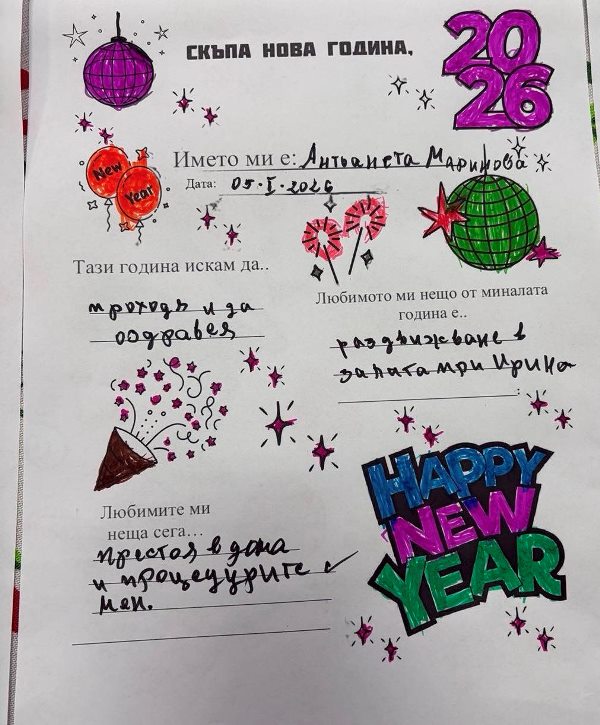 СКЪПА НОВА ГОДИНА,
20
26
New
Year
Името ми е: Антоанета Маринова
Дата: 05.I.2026
Тази година искам да..
проходя и да
оздравея
Любимото ми нещо от миналата
година е..
раздвижване в
залата при Ирина
Любимите ми
неща сега...
Престоя в дома
и процедурите с
мен.
HAPPY
NEW
YEAR